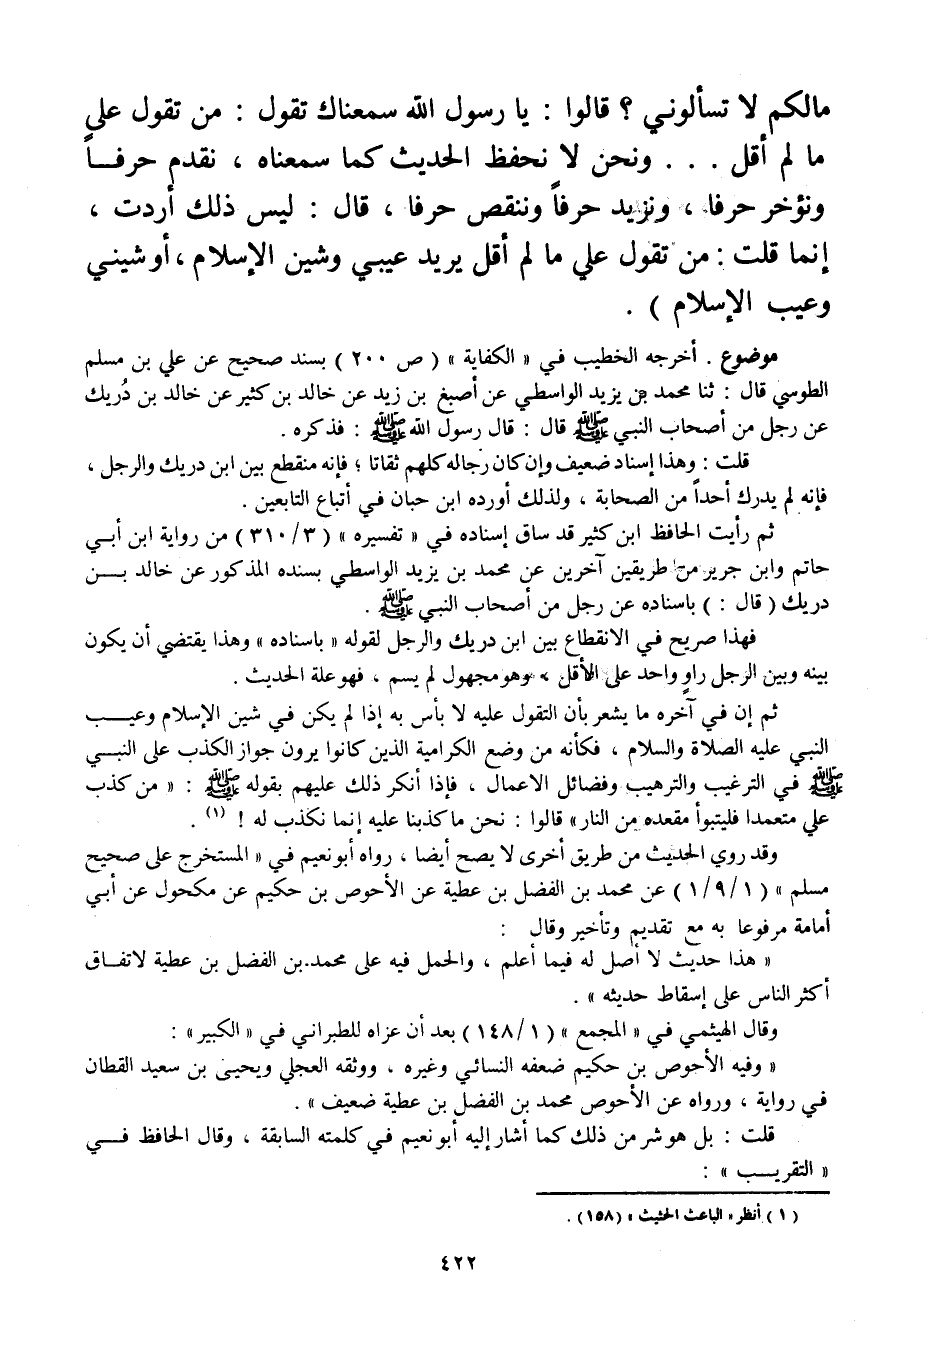 مالكم لا تسألوني ؟ قالوا : يا رسول الله سمعناك تقول : من تقول علي
ما لم أقل . . . ونحن لا نحفظ الحديث كما سمعناه ، نقدم حرفــاً
ونؤخر حرفا ، ونزيد حرفاً وننقص حرفا ، قال : ليس ذلك أردت ،
إنما قلت : من تقول علي ما لم أقل يريد عيبي وشين الإسلام ، أو شيني
وعيب الإسلام ) .
موضوع . أخرجه الخطيب في « الكفاية » ( ص ٢٠٠ ) بسند صحيح عن علي بن مسلم
الطوسي قال : ثنا محمد بن يزيد الواسطي عن أصبغ بن زيد عن خالد بن كثير عن خالد بن دُريك
عن رجل من أصحاب النبي ﷺ قال : قال رسول الله ﷺ : فذكره .
قلت : وهذا إسناد ضعيف وإن كان رجاله كلهم ثقاتا ؛ فإنه منقطع بين ابن دريك والرجل ،
فإنه لم يدرك أحداً من الصحابة ، ولذلك أورده ابن حبان في أتباع التابعين .
ثم رأيت الحافظ ابن كثير قد ساق إسناده في « تفسيره » ( ٣١٠/٣ ) من رواية ابن أبي
حاتم وابن جرير من طريقين آخرين عن محمد بن يزيد الواسطي بسنده المذكور عن خالد بــن
دريك ( قال : ) باسناده عن رجل من أصحاب النبي ﷺ .
فهذا صريح في الانقطاع بين ابن دريك والرجل لقوله « باسناده » وهذا يقتضي أن يكون
بينه وبين الرجل راوٍ واحد على الأقل ، وهو مجهول لم يسم ، فهو علة الحديث .
ثم إن في آخره ما يشعر بأن التقول عليه لا بأس به إذا لم يكن في شين الإسلام وعيــب
النبي عليه الصلاة والسلام ، فكأنه من وضع الكرامية الذين كانوا يرون جواز الكذب على النبــي
ﷺ في الترغيب والترهيب وفضائل الاعمال ، فإذا أنكر ذلك عليهم بقوله ﷺ : « من كذب
علي متعمدا فليتبوأ مقعده من النار » قالوا : نحن ما كذبنا عليه إنما نكذب له ! (١) .
وقد روي الحديث من طريق أخرى لا يصح أيضا ، رواه أبو نعيم في « المستخرج على صحيح
مسلم » ( ١/٩/١ ) عن محمد بن الفضل بن عطية عن الأحوص بن حكيم عن مكحول عن أبي
أمامة مرفوعا به مع تقديم وتأخير وقال :
« هذا حديث لا أصل له فيما أعلم ، والحمل فيه على محمد بن الفضل بن عطية لاتفــاق
أكثر الناس على إسقاط حديثه » .
وقال الهيثمي في « المجمع » ( ١٤٨/١ ) بعد أن عزاه للطبراني في « الكبير » :
« وفيه الأحوص بن حكيم ضعفه النسائي وغيره ، ووثقه العجلي ويحيى بن سعيد القطان
في رواية ، ورواه عن الأحوص محمد بن الفضل بن عطية ضعيف » .
قلت : بل هو شر من ذلك كما أشار إليه أبو نعيم في كلمته السابقة ، وقال الحافظ فــي
« التقريــب » :
( ١ ) أنظر « الباعث الحثيث » (١٥٨) .
٤٢٢